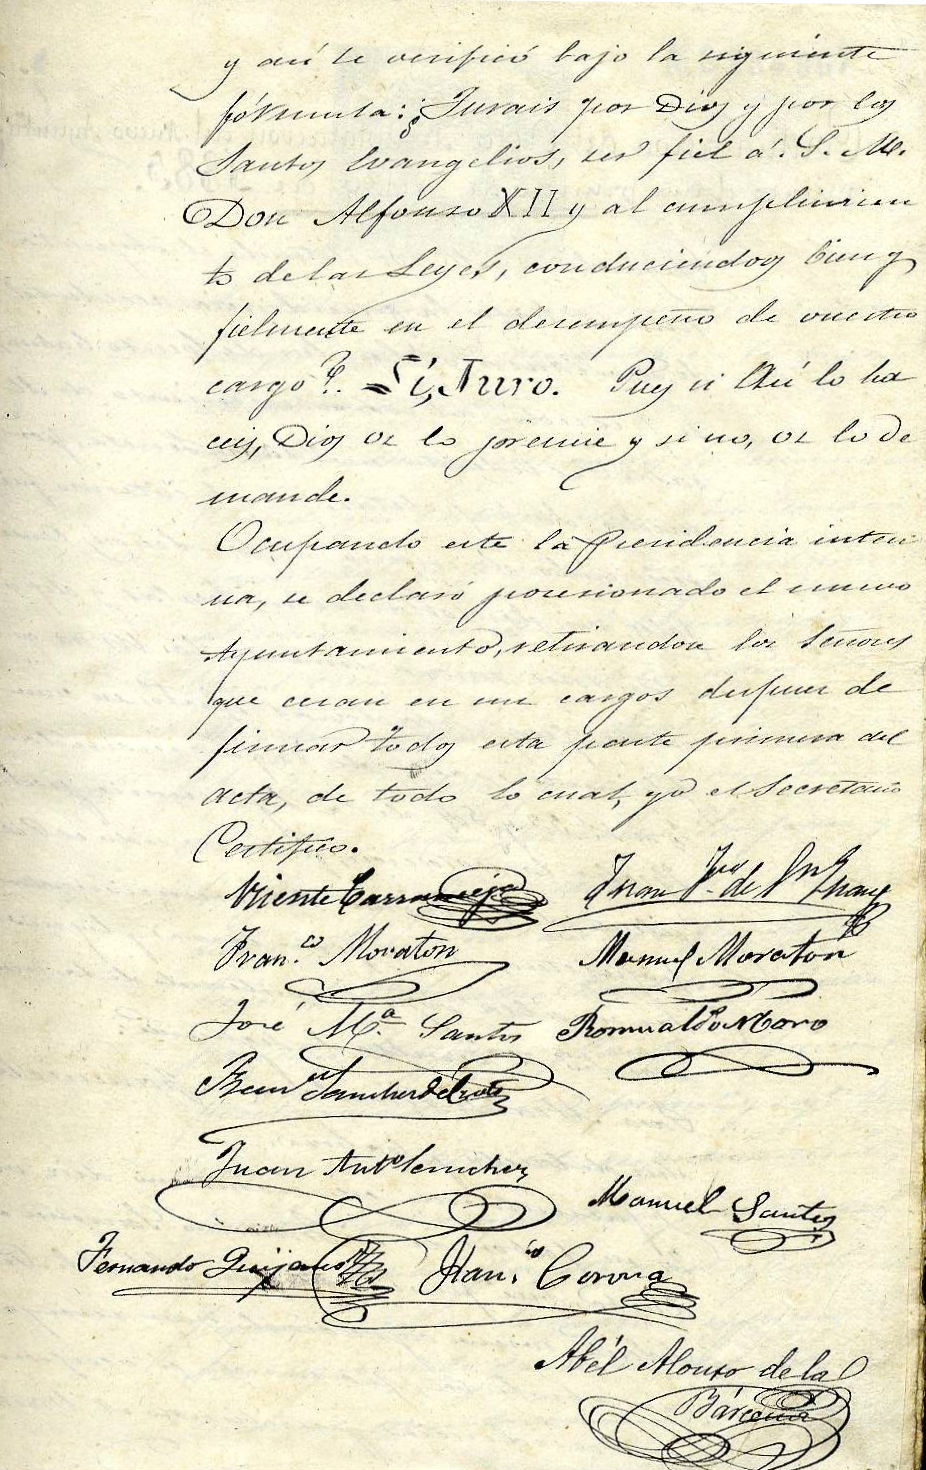 y así se verificó bajo la siguiente
fórmula: ¿Jurais por Dios y por los
Santos Evangelios, ser fiel á S. M.
Don Alfonso XII y al cumplimien
to de las Leyes, conduciendoos bien y
fielmente en el desempeño de vuestro
cargo?. =Sí, Juro. Pues si Así lo ha
ceis, Dios os lo premie y si no, os lo de
mande.
Ocupando este la Presidencia interi
na, se declaró posesionado el nuevo
Ayuntamiento, retirandose los Señores
que cesan en sus cargos despues de
firmar todos esta parte primera del
acta, de todo lo cual, yo el Secretario
Certifico.
Vicente Carranceja Juan de
Fran.co Moraton Manuel Moraton
José M.a Santos Romualdo Moro
Sanchez de
Juan Ant.o Sanchez
Manuel Santos
Fernando Quijano Fran.co Corona
Abél Alonso de la
Bárcena